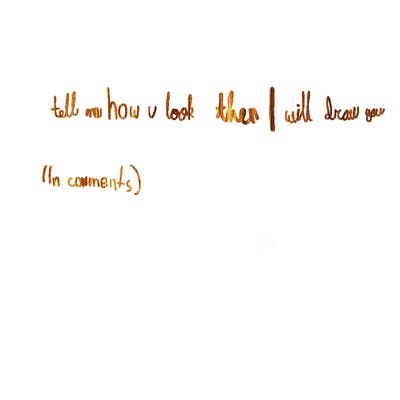 tell me how u look then I will draw you
(In comments)